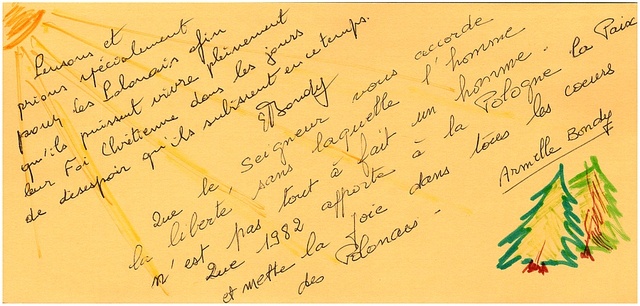 Pensons et
prions spécialement
pour les Polonais afin
qu'ils puissent vivre pleinement
leur Foi Chrétienne dans les jours
de desespoir qu'ils subissent en ce temps.
EBondy
Que le Seigneur vous accorde
la liberté, sans laquelle l'homme
n'est pas tout à fait un homme.
Que 1982 apporte à la Pologne la Paix
et mette la joie dans tous les coeurs
des Polonais.
Armelle Bondy